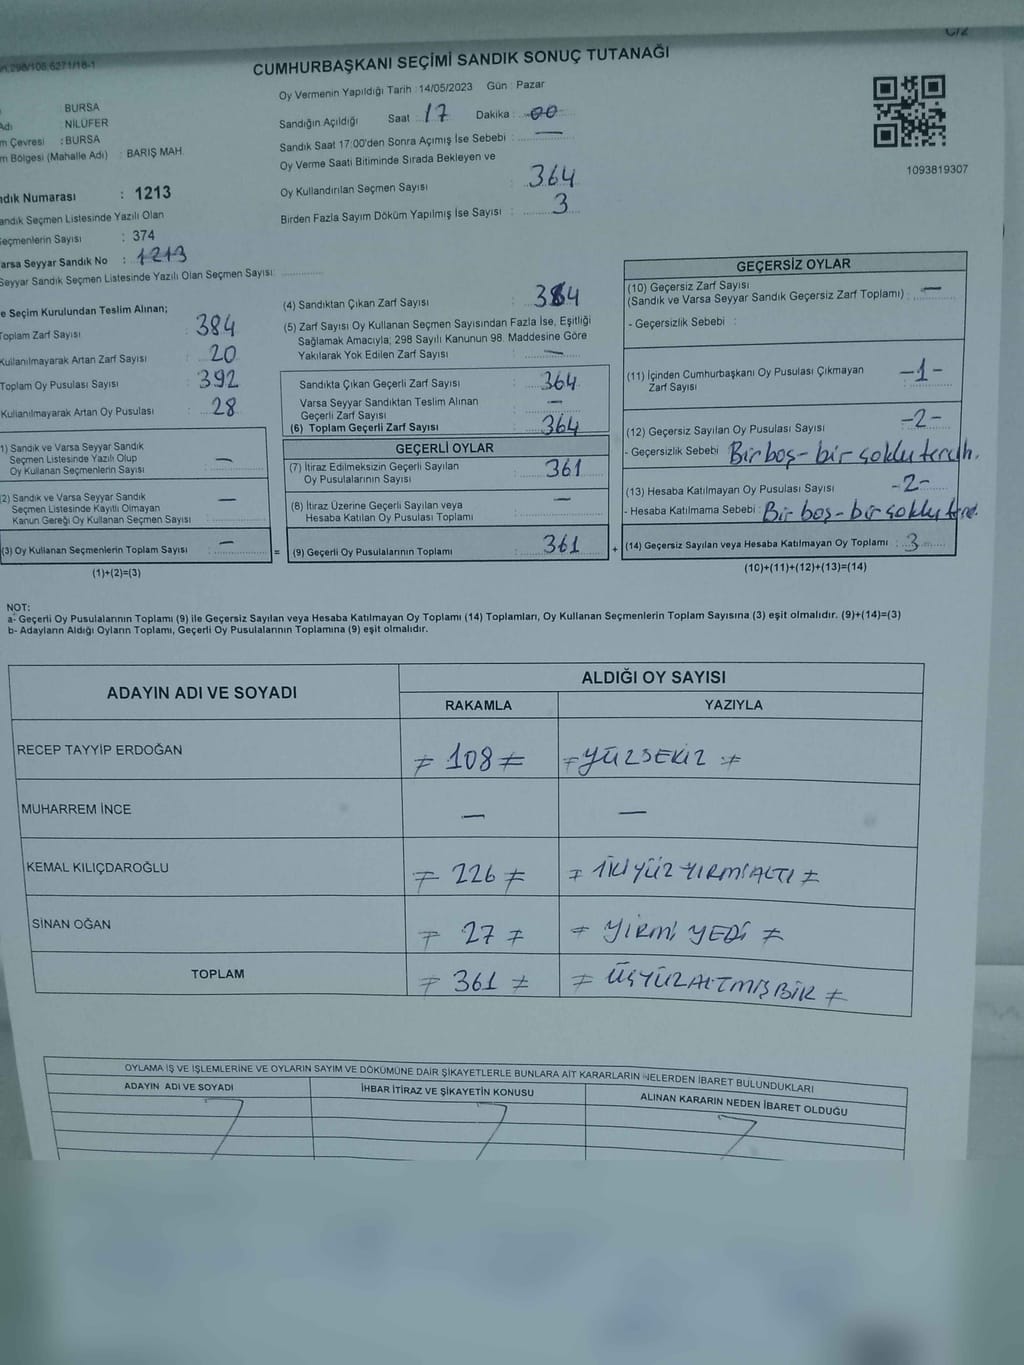 298/108,6271/18-1
C/2
CUMHURBAŞKANI SEÇİMİ SANDIK SONUÇ TUTANAĞI
BURSA
Adı NİLÜFER
m Çevresi : BURSA
m Bölgesi (Mahalle Adı) : BARIŞ MAH.
ndık Numarası : 1213
andık Seçmen Listesinde Yazılı Olan
Seçmenlerin Sayısı : 374
Varsa Seyyar Sandık No : 1213
Seyyar Sandık Seçmen Listesinde Yazılı Olan Seçmen Sayısı:
Oy Vermenin Yapıldığı Tarih : 14/05/2023 Gün : Pazar
Sandığın Açıldığı Saat : 17 Dakika : 00
Sandık Saat 17:00'den Sonra Açılmış İse Sebebi : —
Oy Verme Saati Bitiminde Sırada Bekleyen ve
Oy Kullandırılan Seçmen Sayısı : 364
Birden Fazla Sayım Döküm Yapılmış İse Sayısı : 3
1093819307
e Seçim Kurulundan Teslim Alınan;
Toplam Zarf Sayısı : 384
Kullanılmayarak Artan Zarf Sayısı : 20
Toplam Oy Pusulası Sayısı : 392
Kullanılmayarak Artan Oy Pusulası : 28
1) Sandık ve Varsa Seyyar Sandık
Seçmen Listesinde Yazılı Olup
Oy Kullanan Seçmenlerin Sayısı : —
(2) Sandık ve Varsa Seyyar Sandık
Seçmen Listesinde Kayıtlı Olmayan
Kanun Gereği Oy Kullanan Seçmen Sayısı : —
(3) Oy Kullanan Seçmenlerin Toplam Sayısı : — =
(1)+(2)=(3)
(4) Sandıktan Çıkan Zarf Sayısı : 364
(5) Zarf Sayısı Oy Kullanan Seçmen Sayısından Fazla İse, Eşitliği
Sağlamak Amacıyla, 298 Sayılı Kanunun 98. Maddesine Göre
Yakılarak Yok Edilen Zarf Sayısı : —
Sandıkta Çıkan Geçerli Zarf Sayısı : 364
Varsa Seyyar Sandıktan Teslim Alınan
Geçerli Zarf Sayısı : —
(6) Toplam Geçerli Zarf Sayısı : 364
GEÇERLİ OYLAR
(7) İtiraz Edilmeksizin Geçerli Sayılan
Oy Pusulalarının Sayısı : 361
(8) İtiraz Üzerine Geçerli Sayılan veya
Hesaba Katılan Oy Pusulası Toplamı : —
(9) Geçerli Oy Pusulalarının Toplamı : 361 +
GEÇERSİZ OYLAR
(10) Geçersiz Zarf Sayısı
(Sandık ve Varsa Seyyar Sandık Geçersiz Zarf Toplamı) : —
- Geçersizlik Sebebi :
(11) İçinden Cumhurbaşkanı Oy Pusulası Çıkmayan
Zarf Sayısı : -1-
(12) Geçersiz Sayılan Oy Pusulası Sayısı : -2-
- Geçersizlik Sebebi : Bir boş - bir çoklu tercih.
(13) Hesaba Katılmayan Oy Pusulası Sayısı : -2-
- Hesaba Katılmama Sebebi : Bir boş - bir çoklu
(14) Geçersiz Sayılan veya Hesaba Katılmayan Oy Toplamı : 3
(10)+(11)+(12)+(13)=(14)
NOT:
a- Geçerli Oy Pusulalarının Toplamı (9) ile Geçersiz Sayılan veya Hesaba Katılmayan Oy Toplamı (14) Toplamları, Oy Kullanan Seçmenlerin Toplam Sayısına (3) eşit olmalıdır. (9)+(14)=(3)
b- Adayların Aldığı Oyların Toplamı, Geçerli Oy Pusulalarının Toplamına (9) eşit olmalıdır.
ADAYIN ADI VE SOYADI ALDIĞI OY SAYISI
RAKAMLA YAZIYLA
RECEP TAYYİP ERDOĞAN = 108 = = YÜZSEKİZ =
MUHARREM İNCE — —
KEMAL KILIÇDAROĞLU = 226 = = İKİ YÜZ YİRMİALTI =
SİNAN OĞAN = 27 = = YİRMİ YEDİ =
TOPLAM = 361 = = ÜÇYÜZALTMIŞBİR =
OYLAMA İŞ VE İŞLEMLERİNE VE OYLARIN SAYIM VE DÖKÜMÜNE DAİR ŞİKAYETLERLE BUNLARA AİT KARARLARIN NELERDEN İBARET BULUNDUKLARI
ADAYIN ADI VE SOYADI İHBAR İTİRAZ VE ŞİKAYETİN KONUSU ALINAN KARARIN NEDEN İBARET OLDUĞU